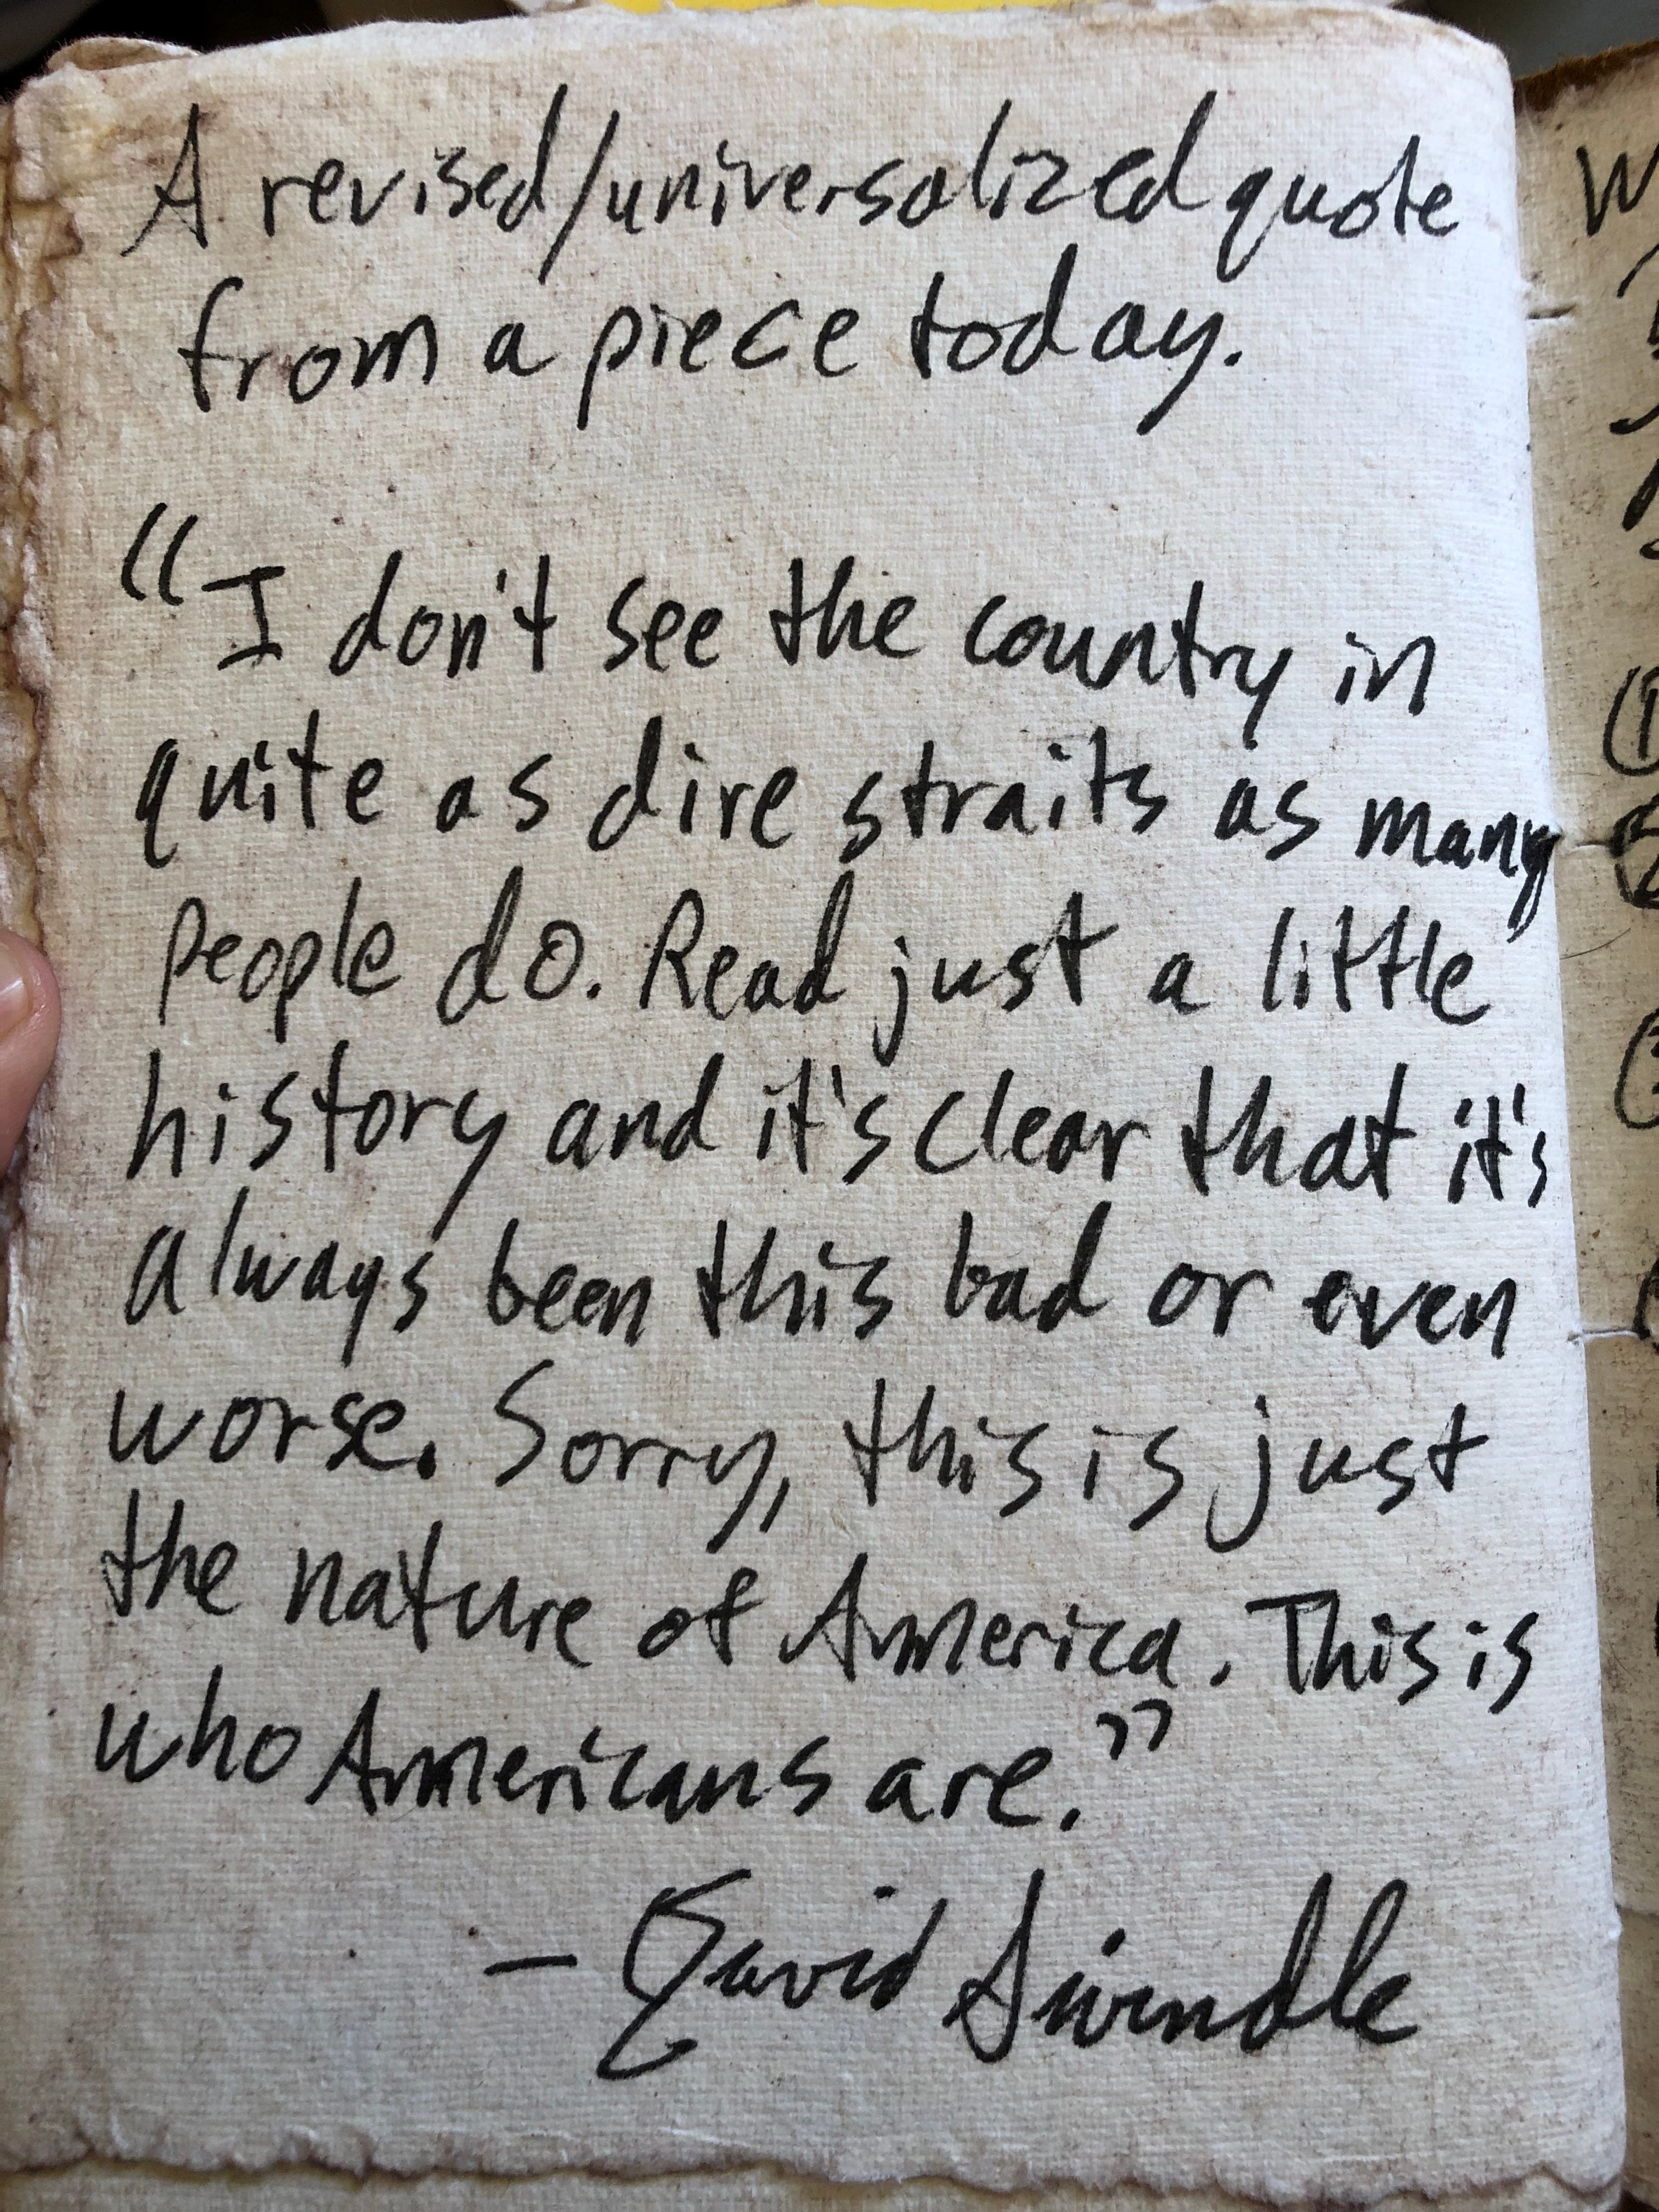 A revised/universalized quote
from a piece today.
"I don't see the country in
quite as dire straits as many
people do. Read just a little
history and it's clear that it's
always been this bad or even
worse. Sorry, this is just
the nature of America. This is
who Americans are."
- David Swindle
W
1
2
3